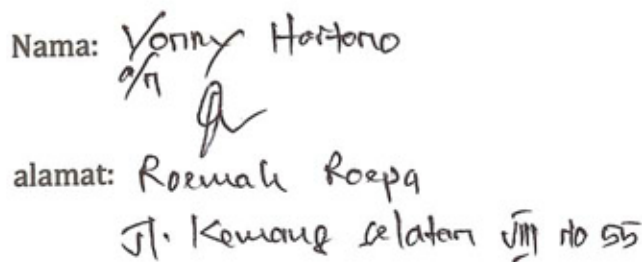 Nama: Vonny Hartono
a/n
alamat: Roemah Roepa
Jl. Kemang selatan VIII no 55